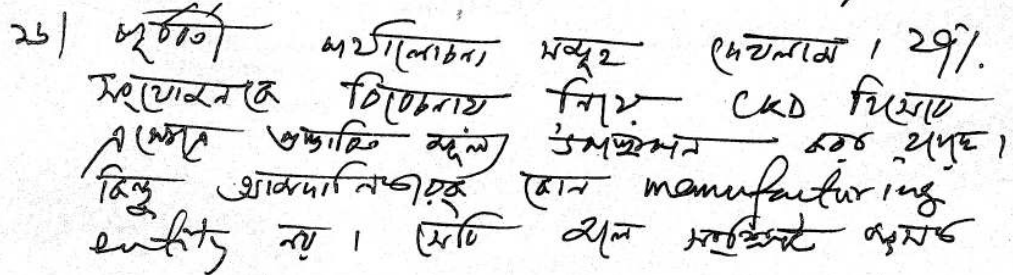 ২৬| পূর্ববর্তী পর্যালোচনা সমূহ দেখলাম। 29%.
সংযোজনকে বিবেচনায় নিয়ে CKD হিসেবে
এক্ষেত্রে প্রস্তাবিত মূল্য উপস্থাপন করা হয়েছে।
কিন্তু আমদানিকারক কোন manufacturing
entity নয়। সেটি হলে সংশ্লিষ্ট